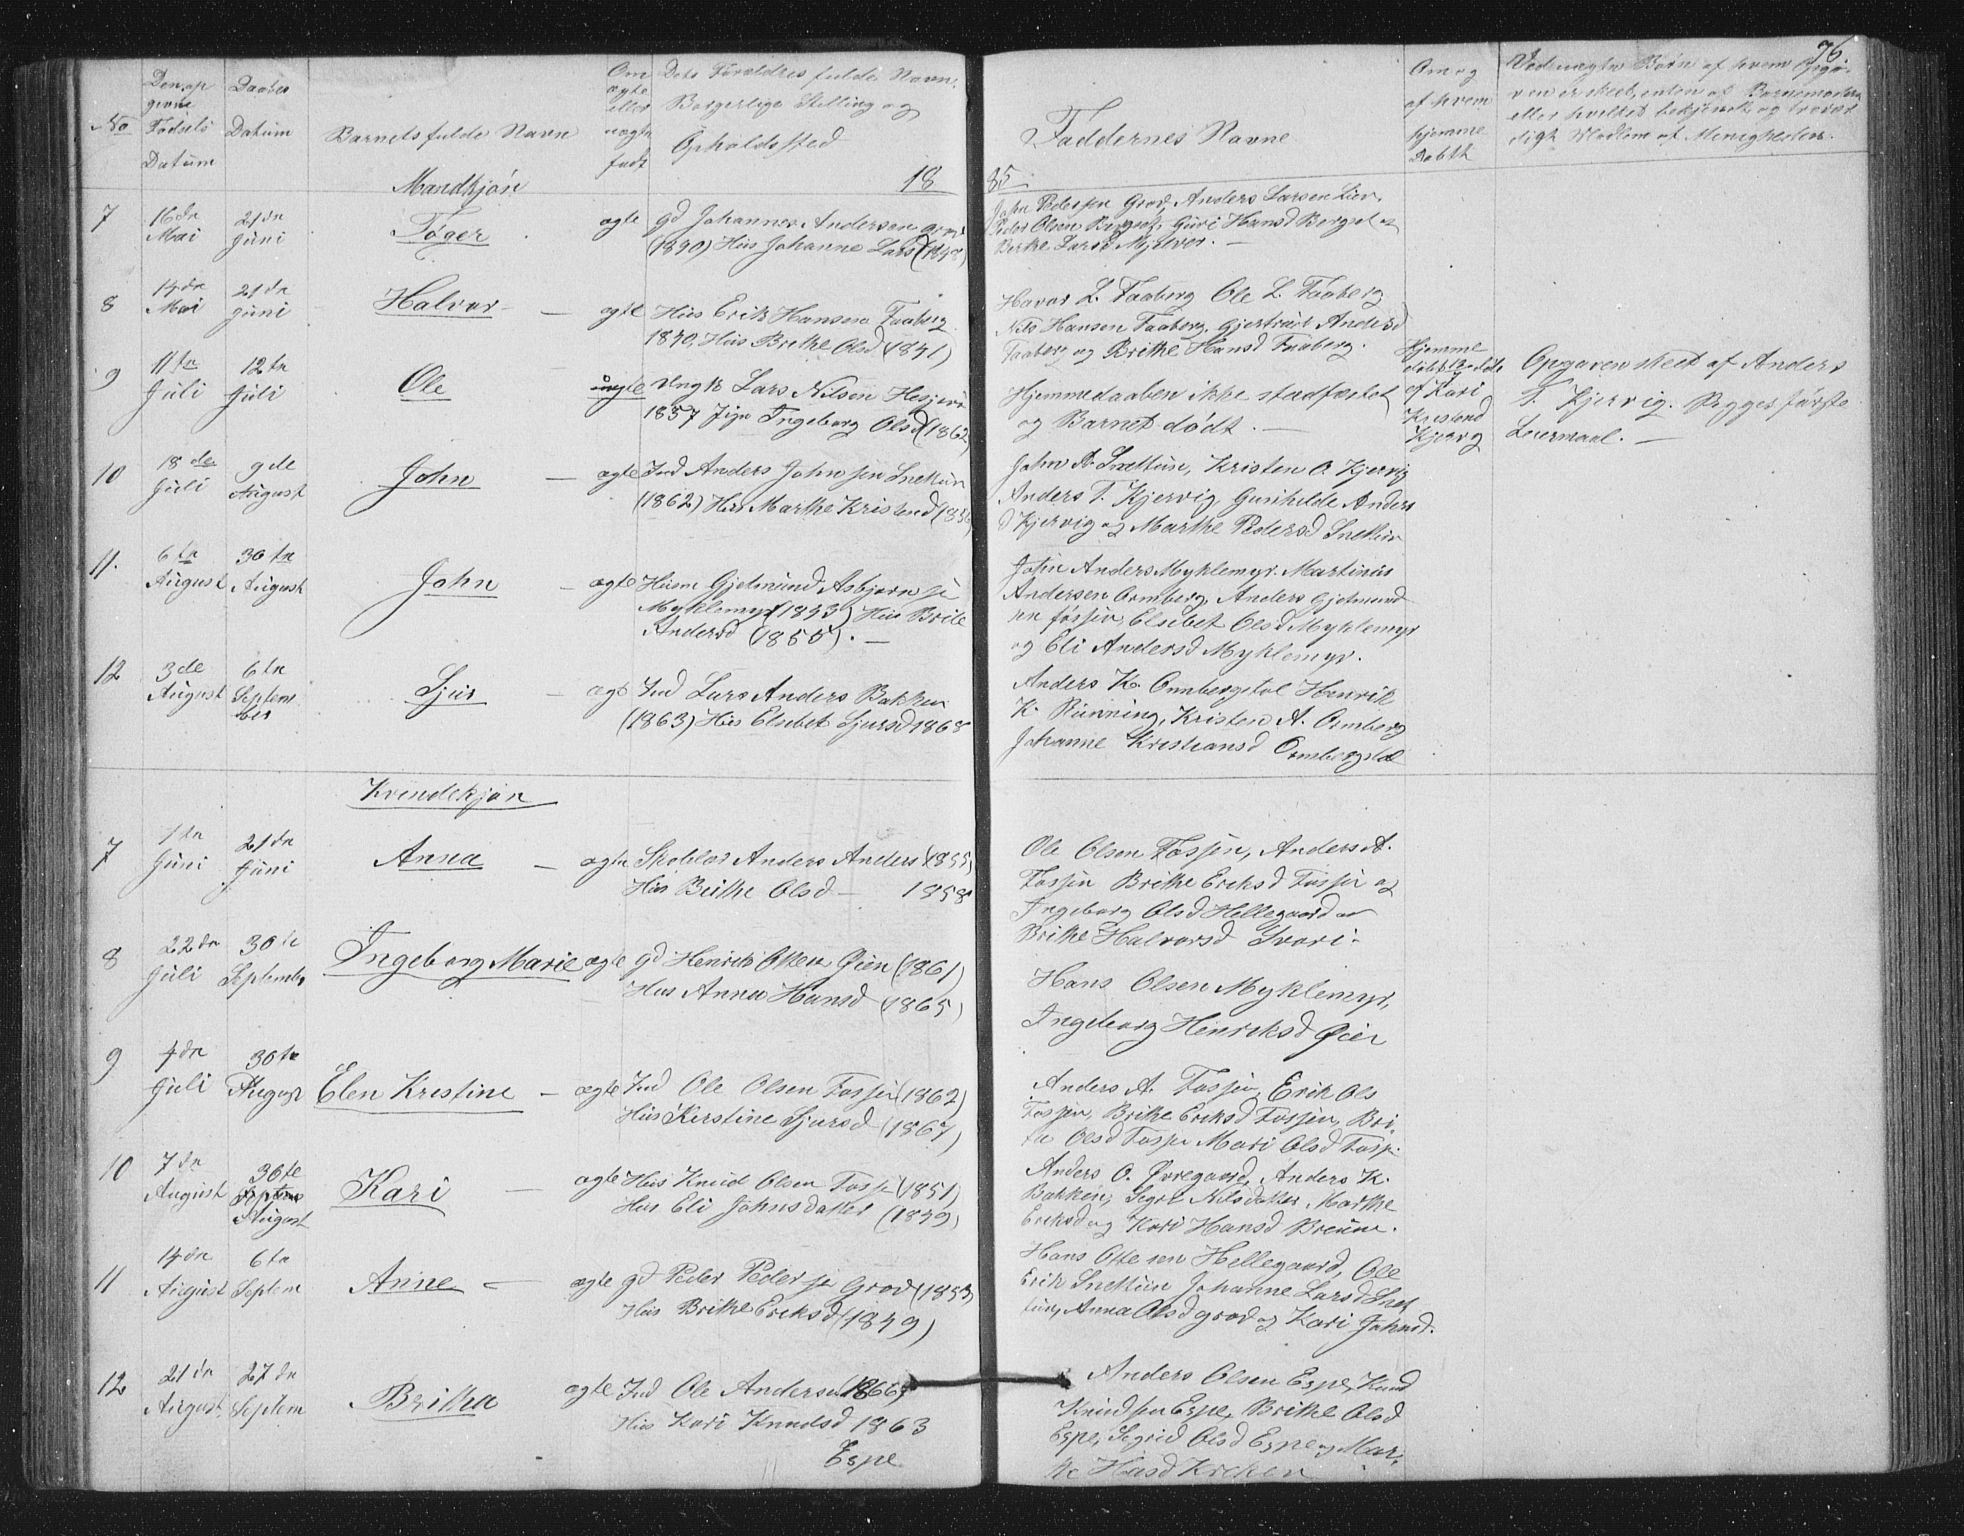 76
No
Den op
givne
Fødsels
Datum
Daabs
Datum
Barnets fulde Navn
Om
ægte
eller
uægte
født
Dets Forældres fulde Navn,
Borgerlige Stilling og
Opholdssted
Faddernes Navne
Om og
af hvem
hjemme
Døbth
Børn af hvem
eller hvilket bekjendt og
digt Medlem af Menigheden.
Mandkjøn
18 85
7 16de Mai 21de Juni Tøger ægte gd Johannes Andersen
(1840) Hus Johanne Larsd (1848)
John Pedersen Grov, Anders Larsen
Peder Olsen Berget, Guri Hansd Berget og
Berthe Larsd
8 14de Mai 21de Juni Halvor — ægte Hus Erik Hansen Faaberg
1840, Hus Brithe Olsd (1841)
Havor L. Faaberg Ole L. Faaberg
Nils Hansen Faaberg, Gjertrud Andersd
Faaberg og Brithe Hansd Faaberg.
9 11te Juli 12te Juli Ole uægte Ungk Lars Nilsen
1857 Pige Ingeborg Olsd (1862)
Hjemmedaaben ikke stadfæstet
og Barnet dødt. —
Hjemme
døbt
af Kari
Kristensd
Kjervig
Opgaven skeet af Anders
T. Kjervig. Begges første
Leiermaal. —
10 18de Juli 9de August John — ægte Ind Anders Johnsen Snetun
(1862) Hus Marthe Kristend
John A. Snettun, Kristen O. Kjervig
Anders T. Kjervig Gunhilde Anders
d Kjervig og Marthe Pedersd Snettun
11. 6te August 30te August John — ægte Husm Gjetmund Asbjørnse
Myklemyr (1833) Hus Brite
Andersd (1850). —
John Anders Myklemyr. Martinus
Andersen Ormberg, Anders Gjetmund
sen Fossen, Elsebet Olsd Myklemyr
og Eli Andersd Myklemyr.
12 3de August 6te September Sjur — ægte Ind Lars Anders Bakken
(1863) Hus Elsebet Sjursd 1868
Anders K. Ormbergstøl Henrik
K. Rønning, Kristen A. Ormberg
Johanne Kristiansd Ormbergstøl
Kvindekjøn
7 1te Juni 21de Juni Anna — ægte Skolelær Anders Anders (1855)
Hus Brithe Olsd — 1858
Ole Olsen Fossen, Anders A.
Fossen Brithe Eriksd Fossen og
Ingeborg Olsd Hellegaard og
Brithe Halvorsd
8 22de Juli 30te September Ingeborg Marie ægte gd Henrik Otten Øien (1861)
Hus Anna Hansd (1865)
Hans Olsen Myklemyr,
Ingeborg Henriksd Øien
9 4de Juli 30te August Elen Kristine — ægte Ind Ole Olsen Fossen (1862)
Hus Kirstine Sjursd (1867)
Anders A. Fossen, Erik Ols
Fossen, Brithe Eriksd Fossen, Bri-
te Olsd Fossen Mari Olsd Foss.
10 7de August 30te August Kari — ægte Hus Knud Olsen Fosse (1851)
Hus Eli Johnsdatter (1849)
Anders O. Øvregaard, Anders K.
Bakken, Segri Nilsdatter, Marthe
Eriksd og Kari Hansd
11 14de August 6te Septem Anne — ægte gd Peder Pederse Grov (1853)
Hus Brithe Eriksd (1849)
Hans Ottesen Hellegaard, Ole
Erik Snettun Johanne Larsd Snet
tun, Anna Olsd Grov og Kari Johnsd.
12 21de August 27de Septem Britha ægte Ind Ole Andersen
Hus Kari Knudsd 1863
Espe
Anders Olsen Espe, Knud
Knudsen Espe, Brithe Olsd
Espe, Segrid Olsd Espe og Mar,
the Hansd